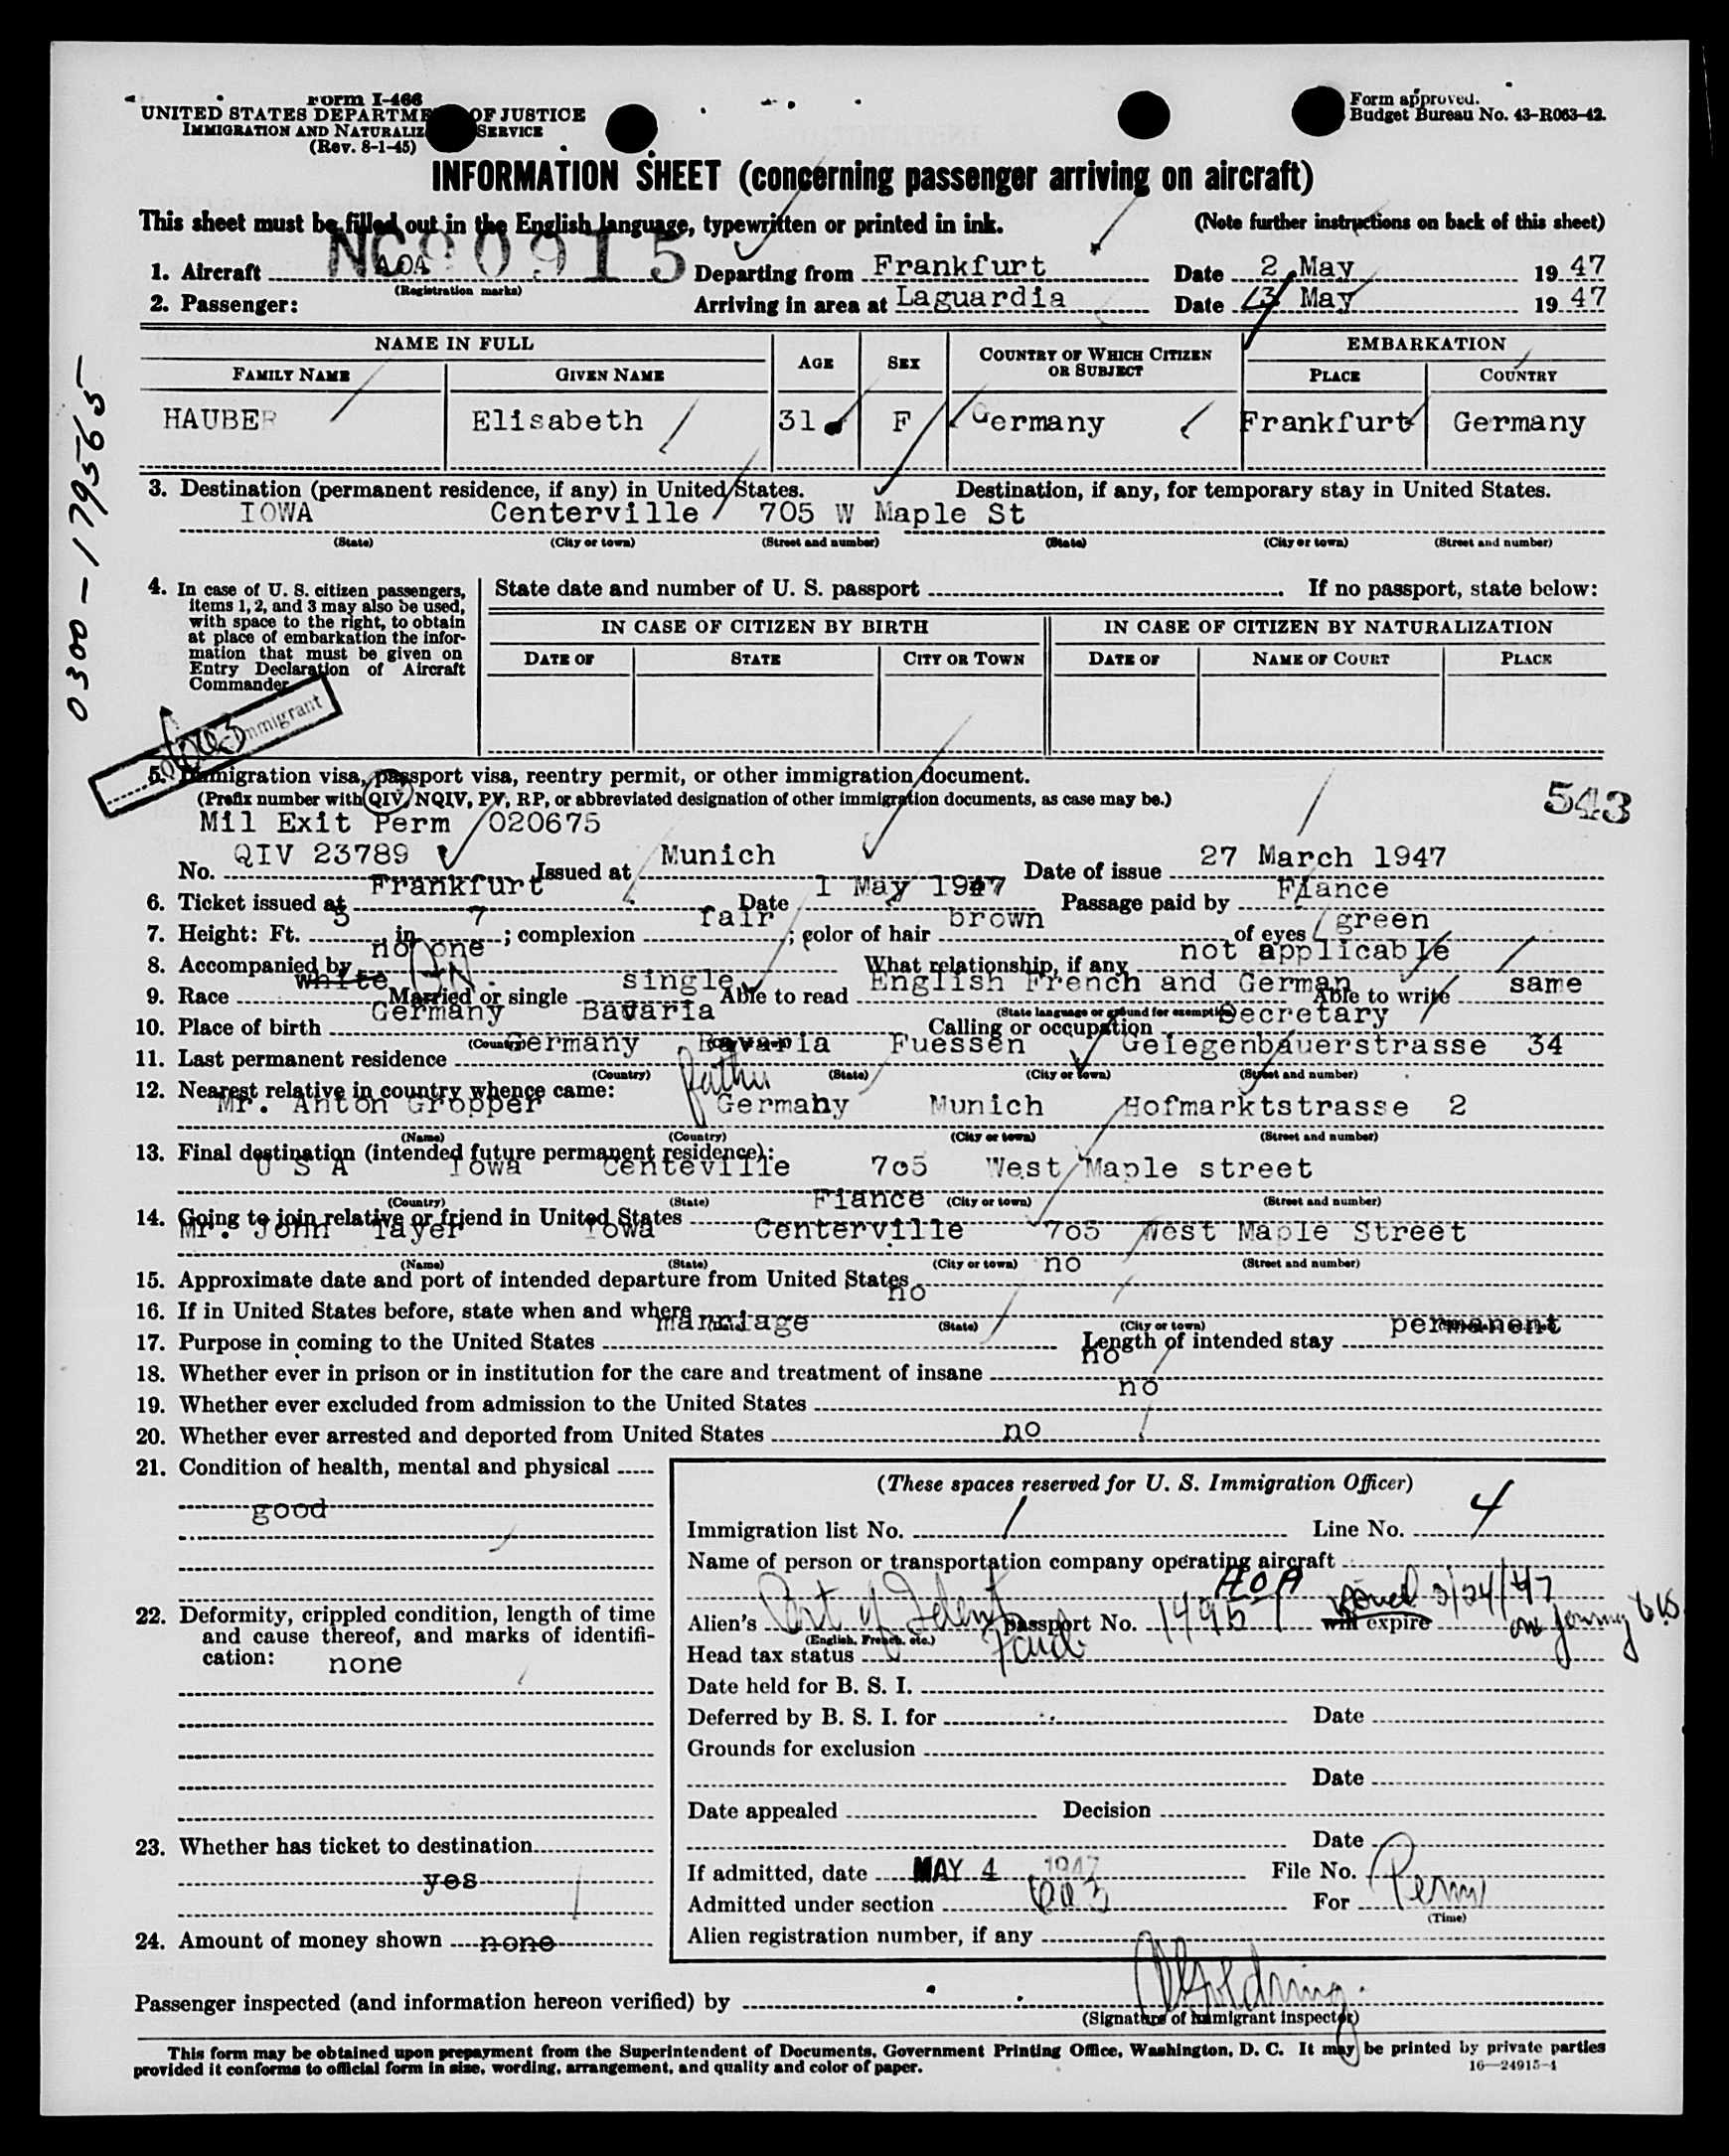 Form I-466
UNITED STATES DEPARTME OF JUSTICE
IMMIGRATION AND NATURALIZ SERVICE
(Rev. 8-1-45)
Form approved.
Budget Bureau No. 43-R063-42.
INFORMATION SHEET (concerning passenger arriving on aircraft)
This sheet must be filled out in the English language, typewritten or printed in ink.
(Note further instructions on back of this sheet)
NC90915
1. Aircraft AOA Departing from Frankfurt Date 2 May 1947
(Registration marks)
2. Passenger: Arriving in area at Laguardia Date 3 May 1947
NAME IN FULL AGE SEX COUNTRY OF WHICH CITIZEN OR SUBJECT EMBARKATION
FAMILY NAME GIVEN NAME PLACE COUNTRY
HAUBER Elisabeth 31 F Germany Frankfurt Germany
0300-179565
3. Destination (permanent residence, if any) in United States. Destination, if any, for temporary stay in United States.
IOWA Centerville 705 W Maple St
(State) (City or town) (Street and number) (State) (City or town) (Street and number)
4. In case of U. S. citizen passengers, items 1, 2, and 3 may also be used, with space to the right, to obtain at place of embarkation the information that must be given on Entry Declaration of Aircraft Commander.
State date and number of U. S. passport If no passport, state below:
IN CASE OF CITIZEN BY BIRTH IN CASE OF CITIZEN BY NATURALIZATION
DATE OF STATE CITY OR TOWN DATE OF NAME OF COURT PLACE
mmigrant
5. Immigration visa, passport visa, reentry permit, or other immigration document.
(Prefix number with QIV, NQIV, PV, RP, or abbreviated designation of other immigration documents, as case may be.)
543
Mil Exit Perm 020675
No. QIV 23789 Issued at Munich Date of issue 27 March 1947
6. Ticket issued at Frankfurt Date 1 May 1947 Passage paid by Fiance
7. Height: Ft. 5 in. 7; complexion fair; color of hair brown of eyes green
8. Accompanied by no one What relationship, if any not applicable
9. Race white Married or single single Able to read English French and German Able to write same
(State language or ground for exemption)
10. Place of birth Germany Bavaria Calling or occupation Secretary
(Country) (City or town)
11. Last permanent residence Germany Bavaria Fuessen Gelegenbauerstrasse 34
(Country) (State) (City or town) (Street and number)
12. Nearest relative in country whence came: Father
Mr. Anton Gropper Germany Munich Hofmarktstrasse 2
(Name) (Country) (City or town) (Street and number)
13. Final destination (intended future permanent residence):
U S A Iowa Centeville 705 West Maple street
(Country) (State) (City or town) (Street and number)
14. Going to join relative or friend in United States Fiance
Mr. John Tayer Iowa Centerville 705 West Maple Street
(Name) (State) (City or town) (Street and number)
15. Approximate date and port of intended departure from United States no
16. If in United States before, state when and where no
(State) (City or town)
17. Purpose in coming to the United States marriage Length of intended stay permanent
18. Whether ever in prison or in institution for the care and treatment of insane no
19. Whether ever excluded from admission to the United States no
20. Whether ever arrested and deported from United States no
21. Condition of health, mental and physical
good
22. Deformity, crippled condition, length of time and cause thereof, and marks of identification: none
23. Whether has ticket to destination
yes
24. Amount of money shown none
(These spaces reserved for U. S. Immigration Officer)
Immigration list No. 1 Line No. 4
Name of person or transportation company operating aircraft
AOA
Alien's Cert of Ident Passport No. 1496 will expire Issued 3/24/47
(English, French, etc.)
Head tax status Paid
Date held for B. S. I.
Deferred by B. S. I. for Date
Grounds for exclusion
Date
Date appealed Decision
Date
If admitted, date MAY 4 1947 File No.
Admitted under section 6a3 For Perm
(Time)
Alien registration number, if any
Passenger inspected (and information hereon verified) by
(Signature of immigrant inspector)
This form may be obtained upon prepayment from the Superintendent of Documents, Government Printing Office, Washington, D. C. It may be printed by private parties
provided it conforms to official form in size, wording, arrangement, and quality and color of paper.
16—24915-1